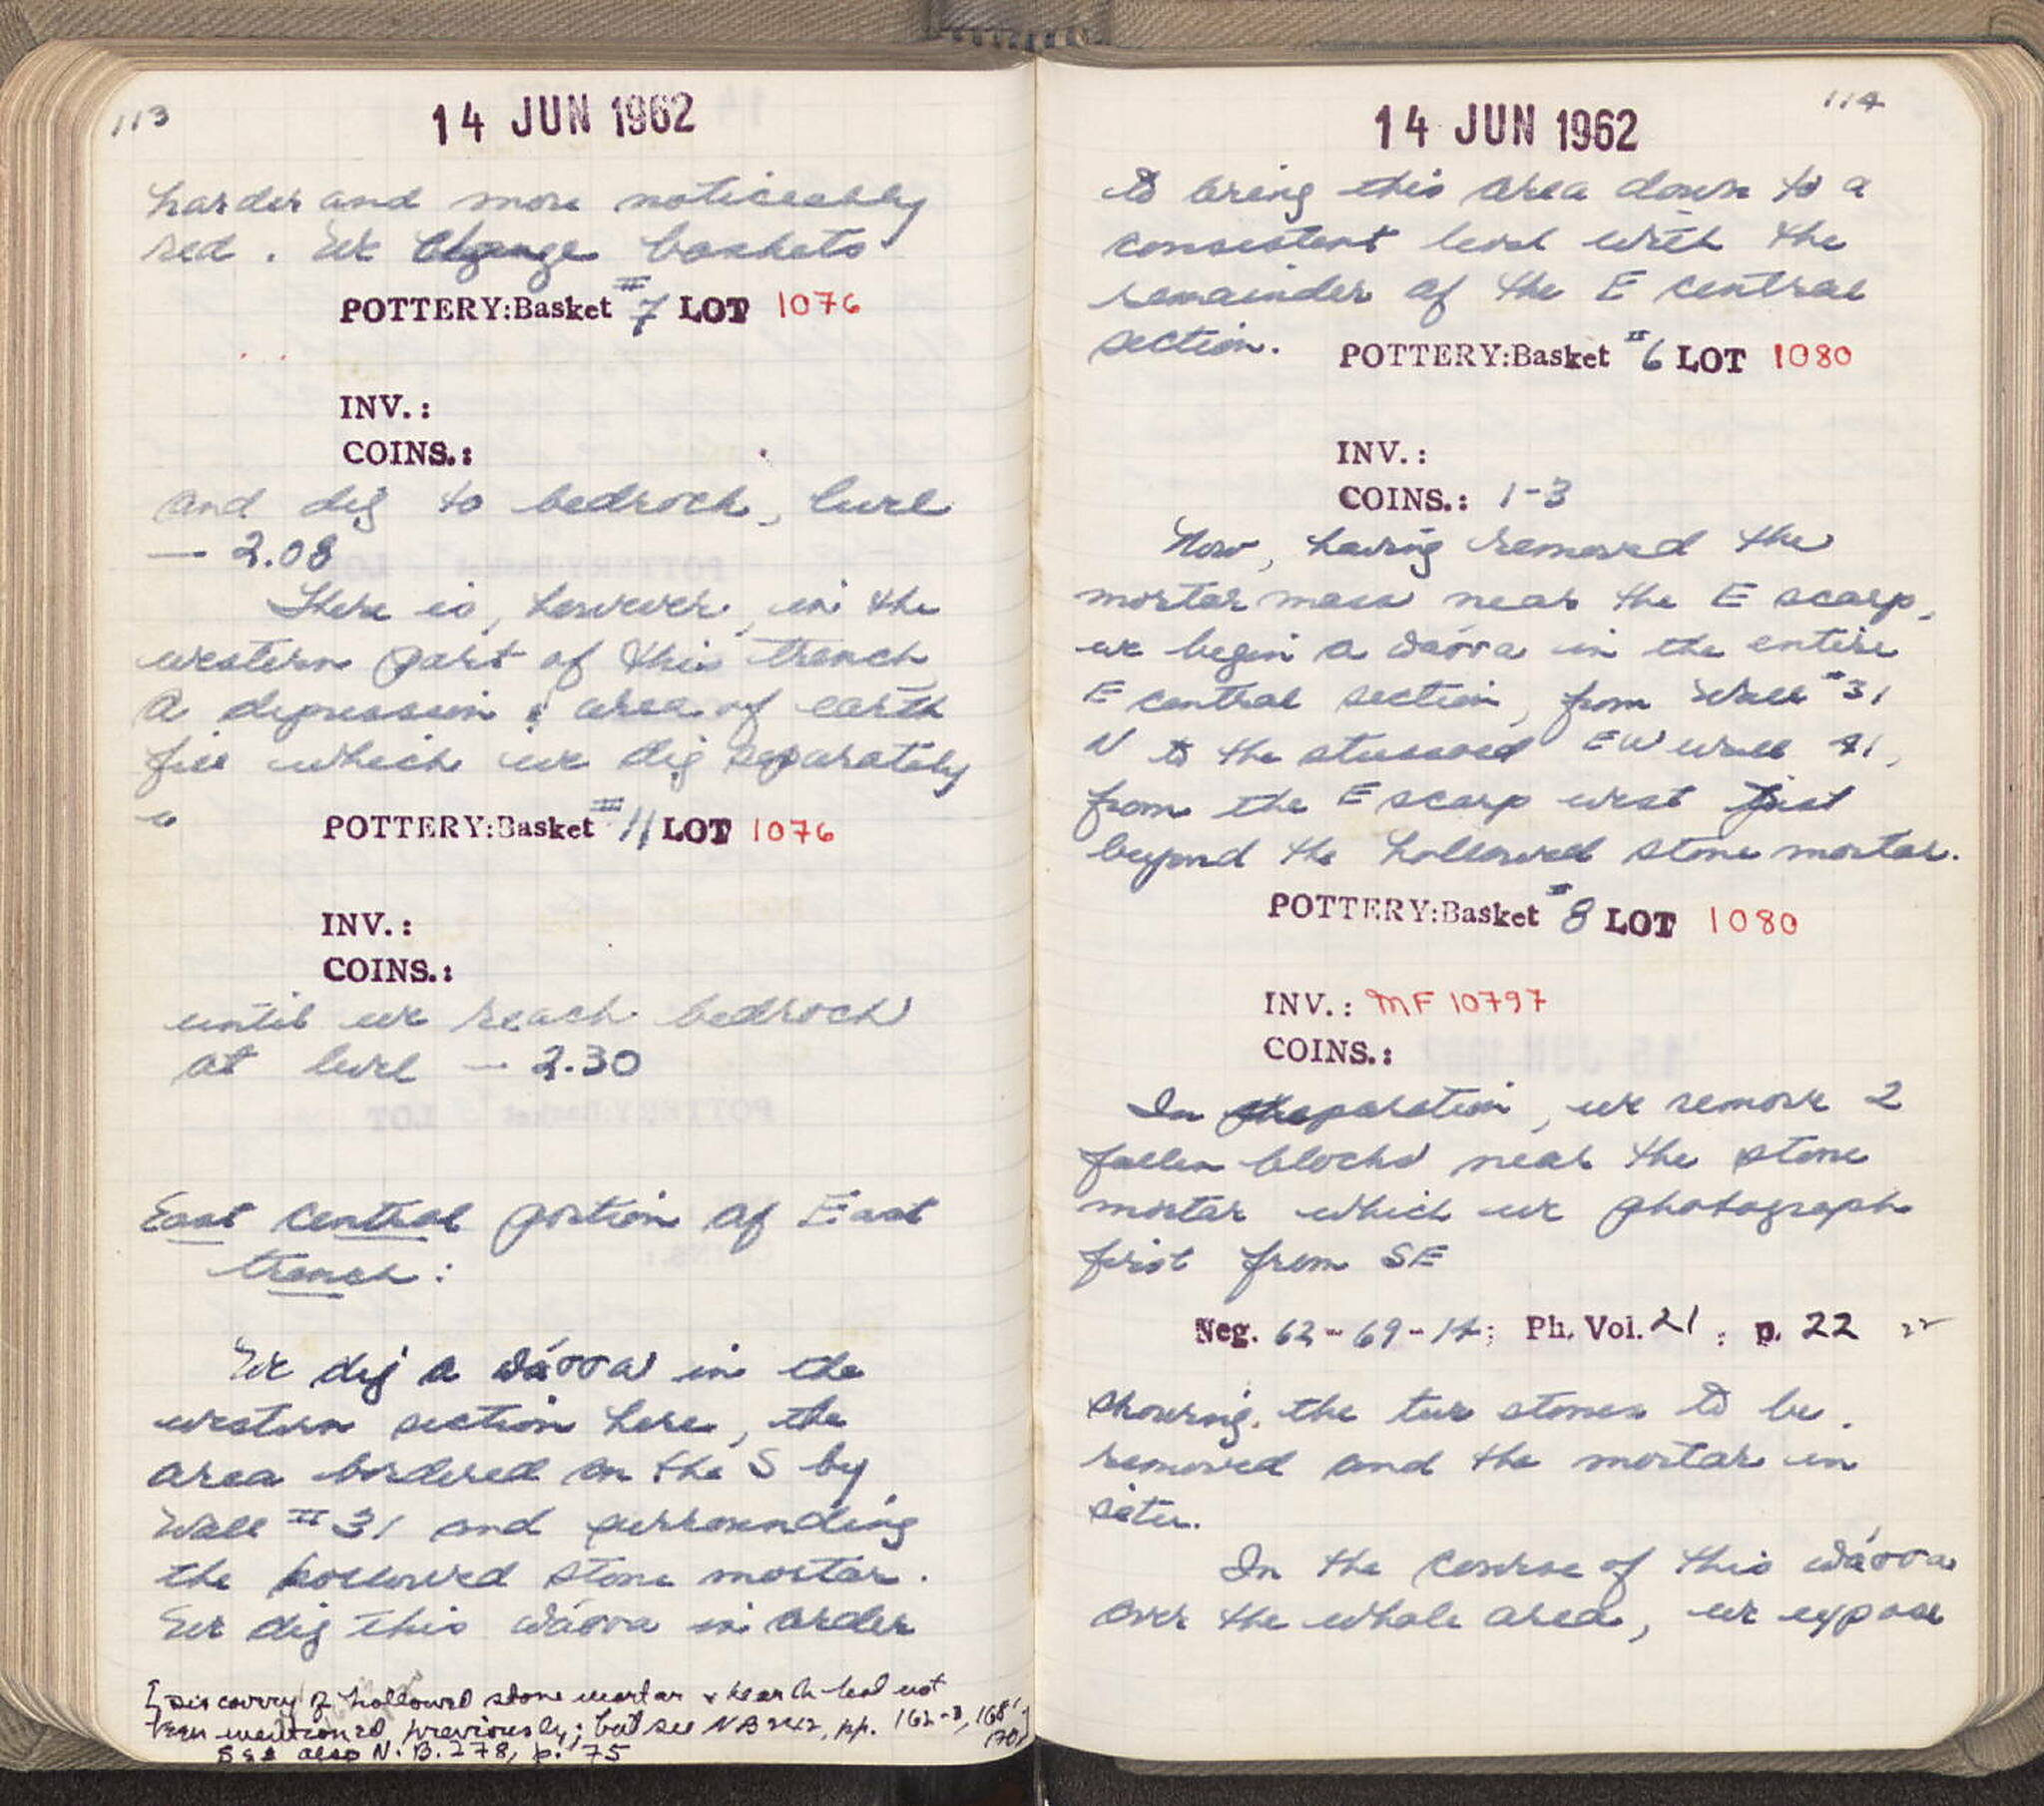 113
14 JUN 1962
harder and more noticeably
red. We change baskets
POTTERY:Basket #7 LOT 1076
INV.:
COINS.:
and dig to bedrock, level
— 2.08
There is, however, in the
western part of this trench
a depression & area of earth
fill which we dig separately
POTTERY:Basket #11 LOT 1076
INV.:
COINS.:
until we reach bedrock
at level — 2.30
East Central portion of East
trench:
We dig a πάσσα in the
western section here, the
area bordered on the S by
Wall #31 and surrounding
the hollowed stone mortar.
We dig this πάσσα in order
[Discovery of hollowed stone mortar & hearth had not
been mentioned previously; but see NB 242, pp. 162-3, 168,
170]
See also N.B. 278, p. 75
114
14 JUN 1962
to bring this area down to a
consistent level with the
remainder of the E central
section. POTTERY:Basket #6 LOT 1080
INV.:
COINS.: 1-3
Now, having removed the
mortar mass near the E scarp,
we begin a πάσσα in the entire
E central section, from Wall #31
N to the stuccoed EW wall 41,
from the E scarp west just
beyond the hollowed stone mortar.
POTTERY:Basket #8 LOT 1080
INV.: MF 10797
COINS.:
In preparation, we remove 2
fallen blocks near the stone
mortar which we photograph
first from SE
Neg. 62-69-14; Ph. Vol. 21; p. 22
showing the two stones to be
removed and the mortar in
situ.
In the course of this πάσσα
over the whole area, we expose